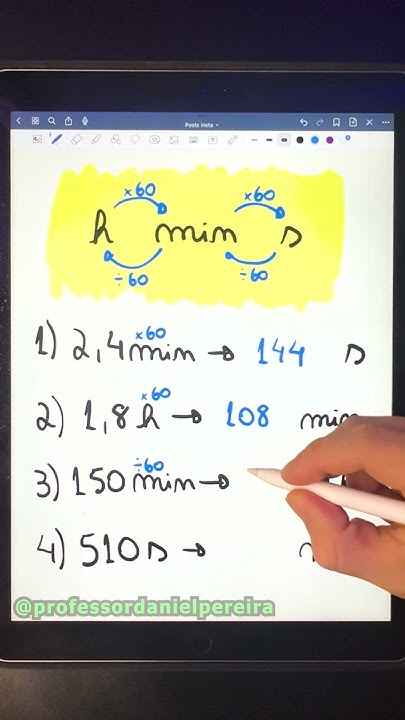 Posts insta
×60 ×60
h min s
÷60 ÷60
×60
1) 2,4 min → 144 s
×60
2) 1,8 h → 108 min
÷60
3) 150 min →
4) 510 s →
@professordanielpereira